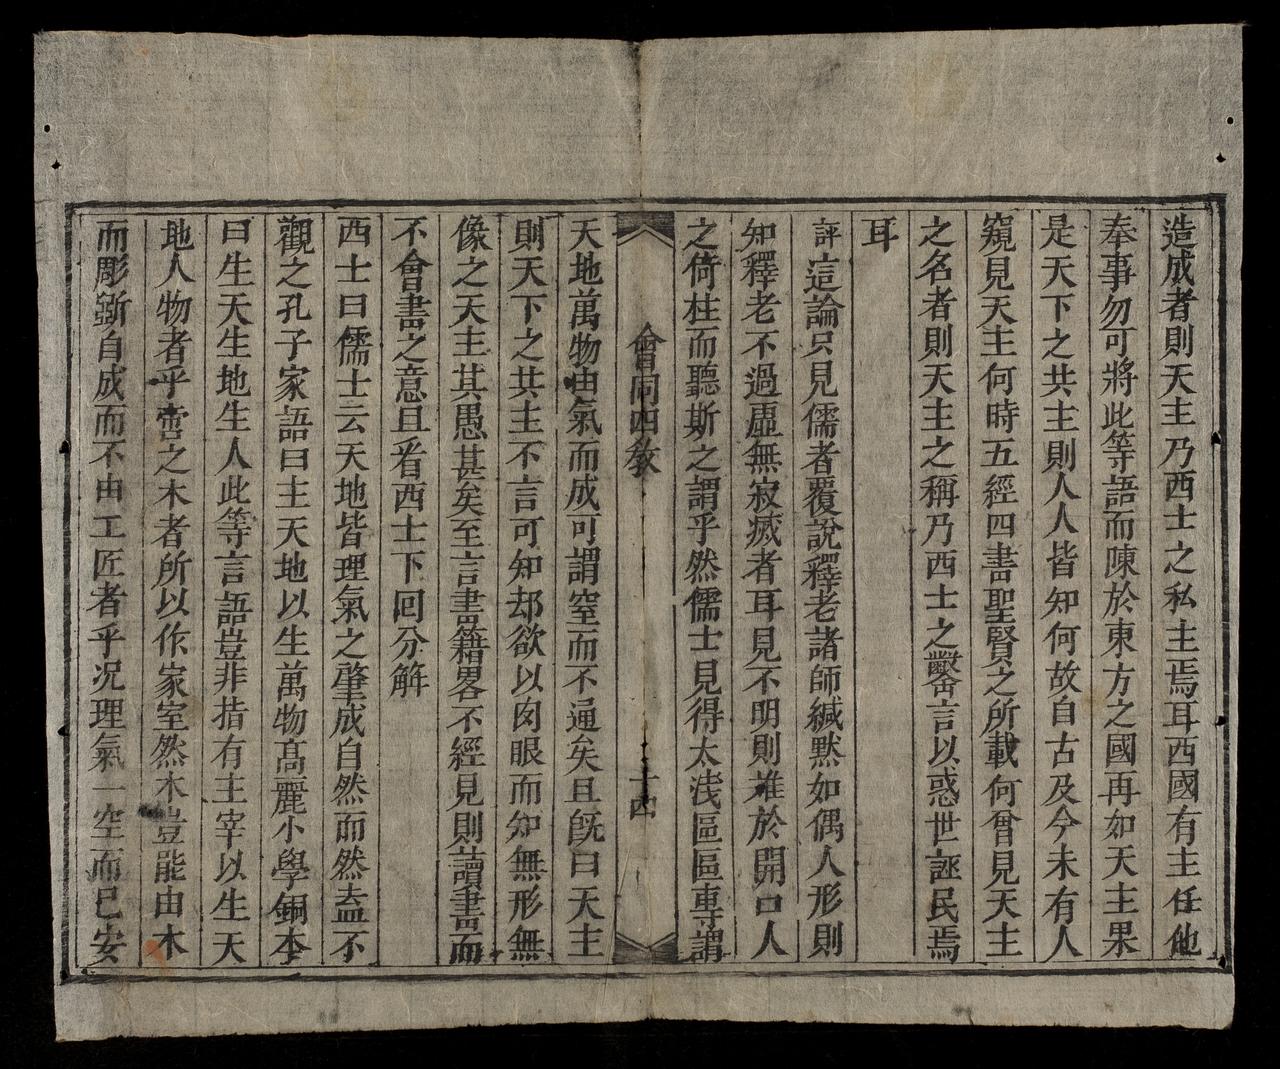 造成者則天主乃西士之私主焉耳西國有主任他
奉事勿可將此等語而陳於東方之國再如天主果
是天下之共主則人人皆知何故自古及今未有人
窺見天主何時五經四書聖賢之所載何曾見天主
之名者則天主之稱乃西士之鑿言以惑世誣民焉
耳
評這論只見儒者覆說釋老諸師緘默如偶人形則
知釋老不過虛無寂滅者耳見不明則难於開口人
之倚柱而聽斯之謂乎然儒士見得太浅區區專謂
會同四教
十四
天地萬物由氣而成可謂窒而不通矣且旣曰天主
則天下之共主不言可知却欲以肉眼而知無形無
像之天主其愚甚矣至言書籍畧不經見則讀書而
不會書之意且看西士下回分解
西士曰儒士云天地皆理氣之肇成自然而然盍不
觀之孔子家語曰主天地以生萬物髙麗小學銅本
曰生天生地生人此等言語豈非指有主宰以生天
地人物者乎壹之木者所以作家室然木豈能由木
而彫斵自成而不由工匠者乎况理氣一空而已安